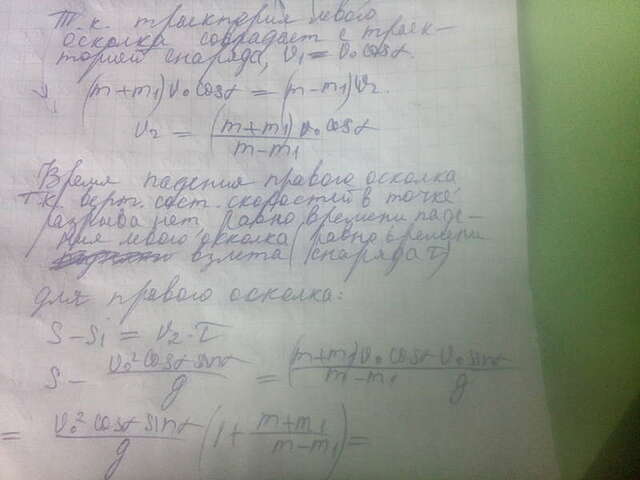 Т.к. траектория левого
осколка совпадает с траек-
торией снаряда, v₁ = v₀cosα.
(m+m₁)v₀cosα = (m-m₁)v₂.
v₂ = (m+m₁)v₀cosα / m-m₁
Время падения правого осколка
Т.к. верт. сост. скоростей в точке
разрыва нет, равно времени паде-
ния левого осколка (равно времени
взлёта снаряда τ)
для правого осколка:
S-S₁ = v₂·τ
S - v₀²cosα sinα / g = (m+m₁)v₀cosα v₀sinα / m-m₁ g
= v₀²cosα sinα / g (1 + m+m₁ / m-m₁) =